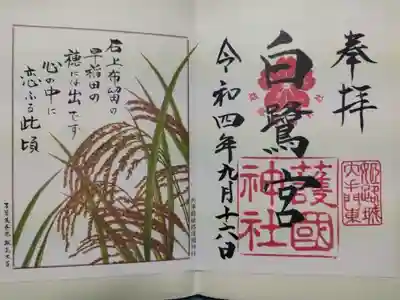 奉拝
白鷺宮
護國
神社
姫路城
大手門東
令和四年九月十六日
石上布留の
早稲田の
穂には出でず
心の中に
恋ふる此頃